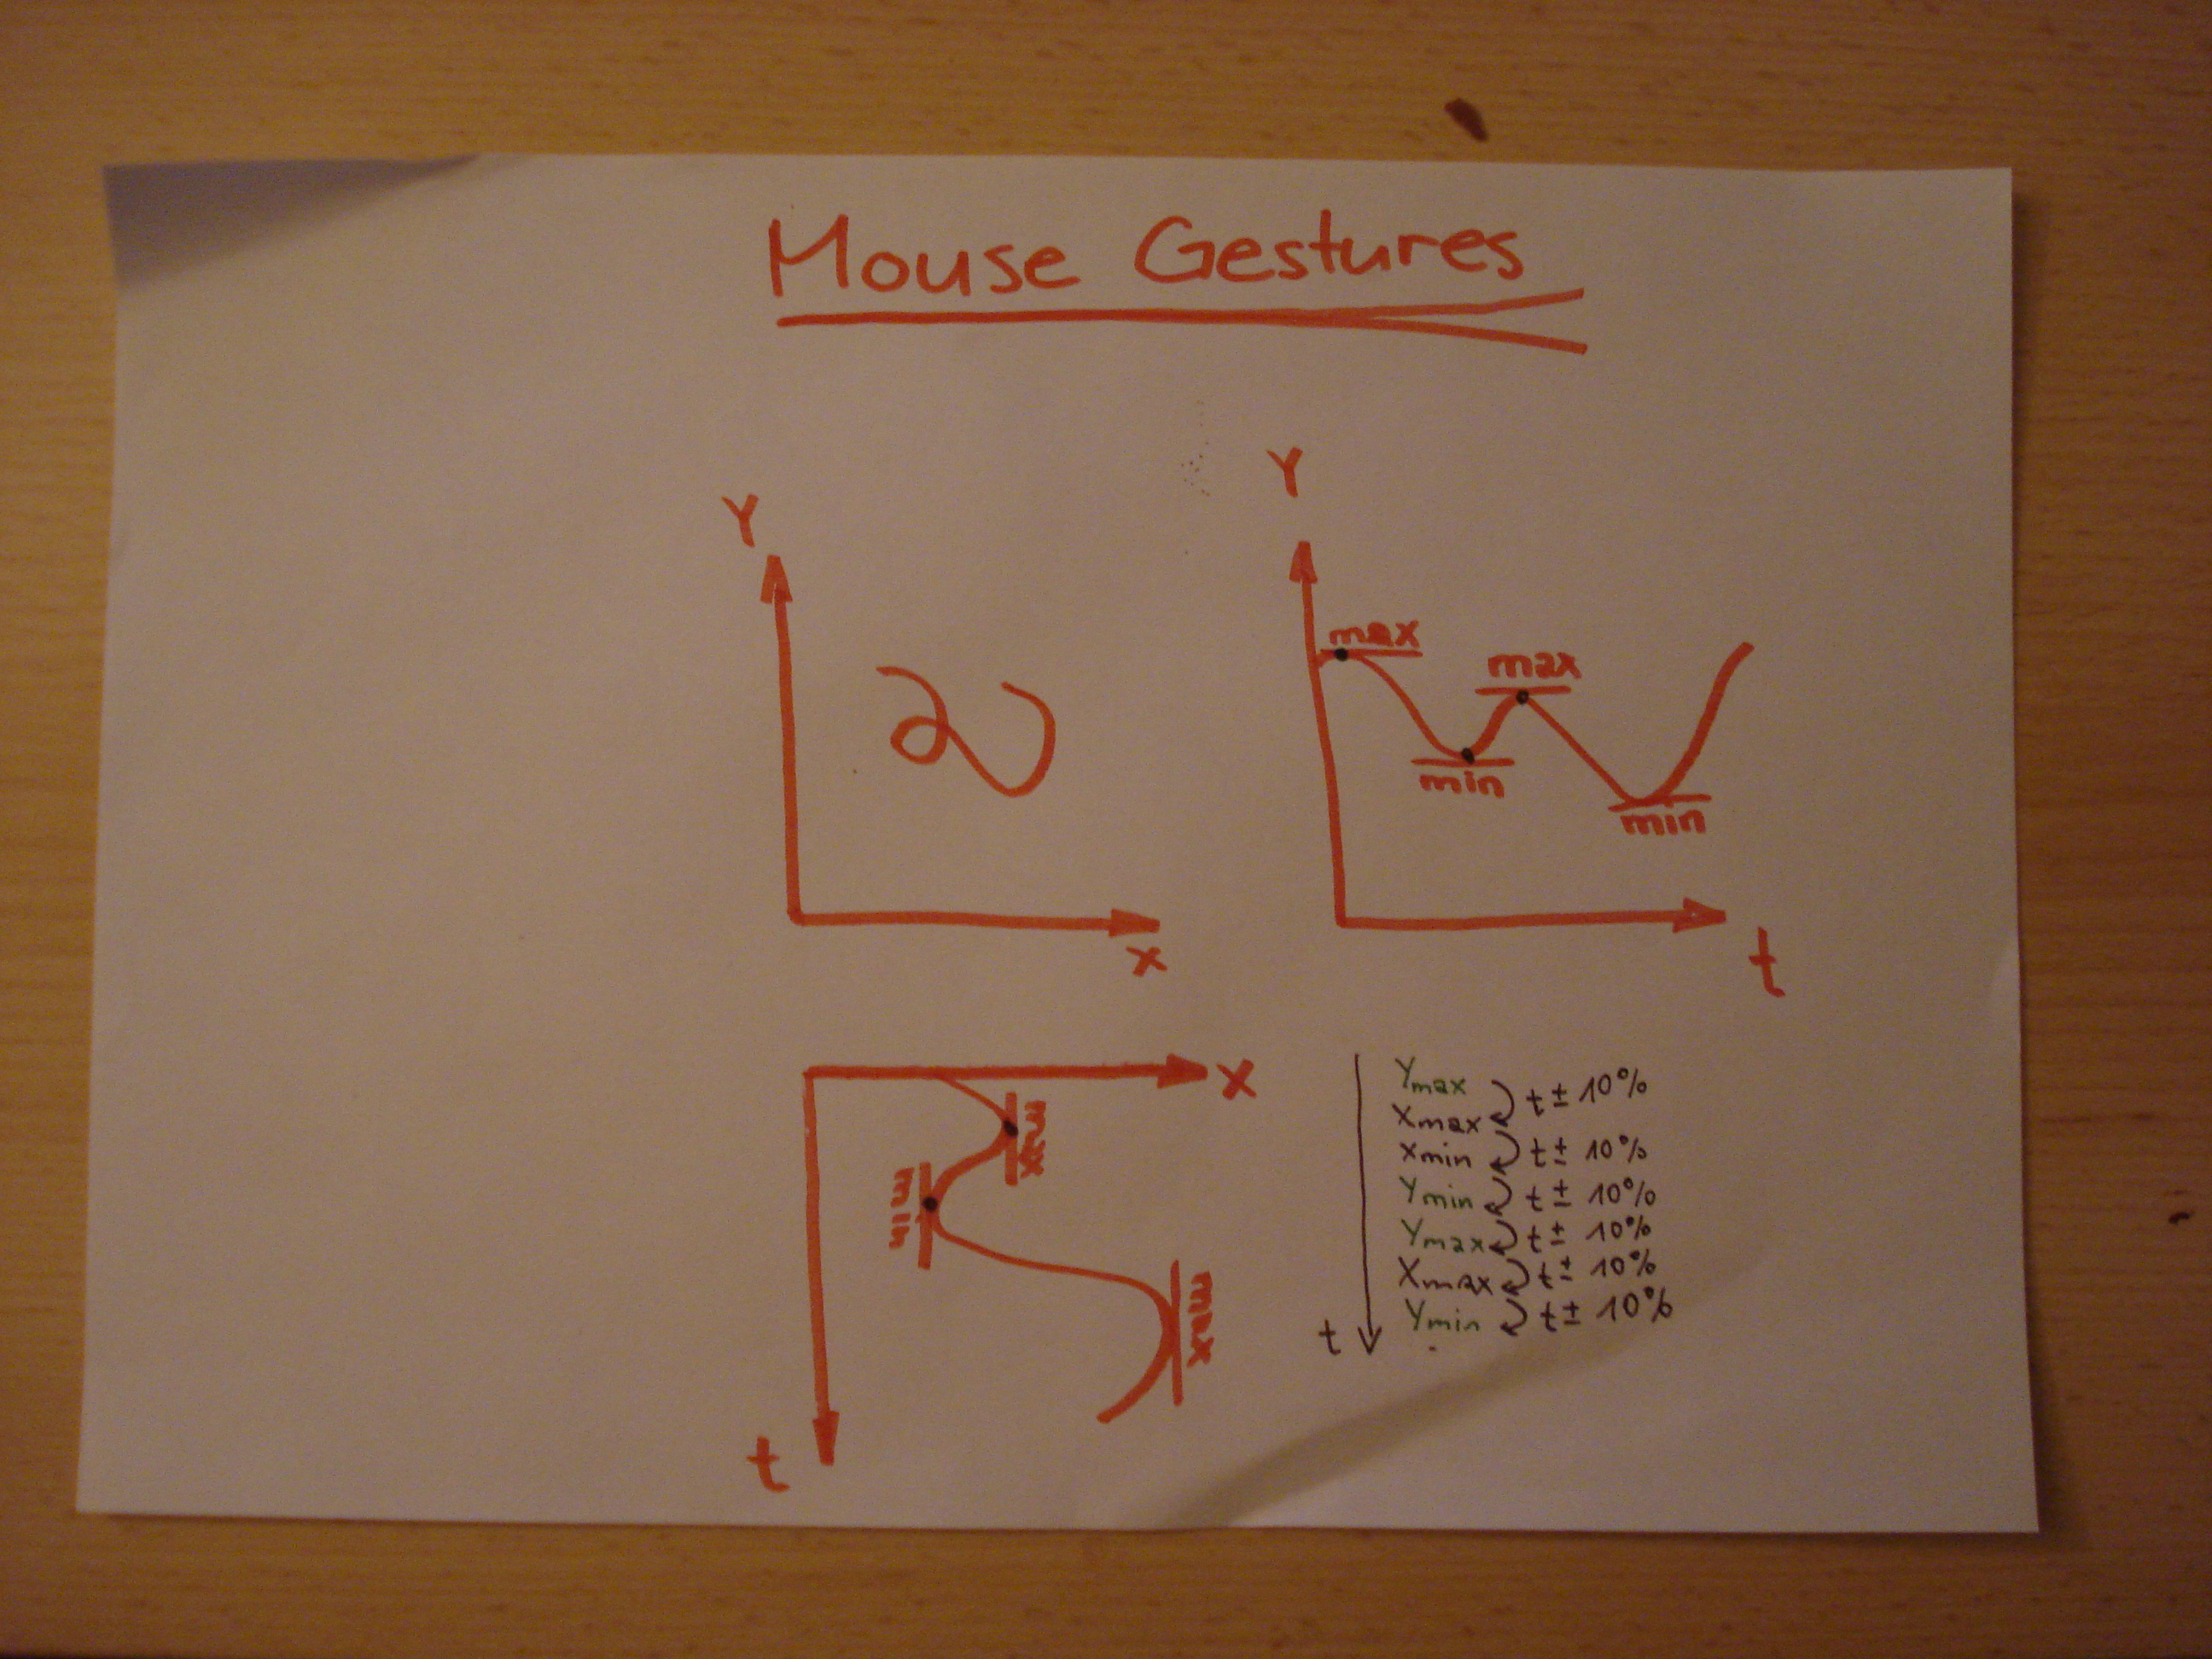 Mouse Gestures
Y
x
Y
max
min
max
min
t
x
max
min
max
t
Ymax
t ± 10%
Xmax
xmin t ± 10%
Ymin t ± 10%
Ymax t ± 10%
Xmax t ± 10%
Ymin t ± 10%
t